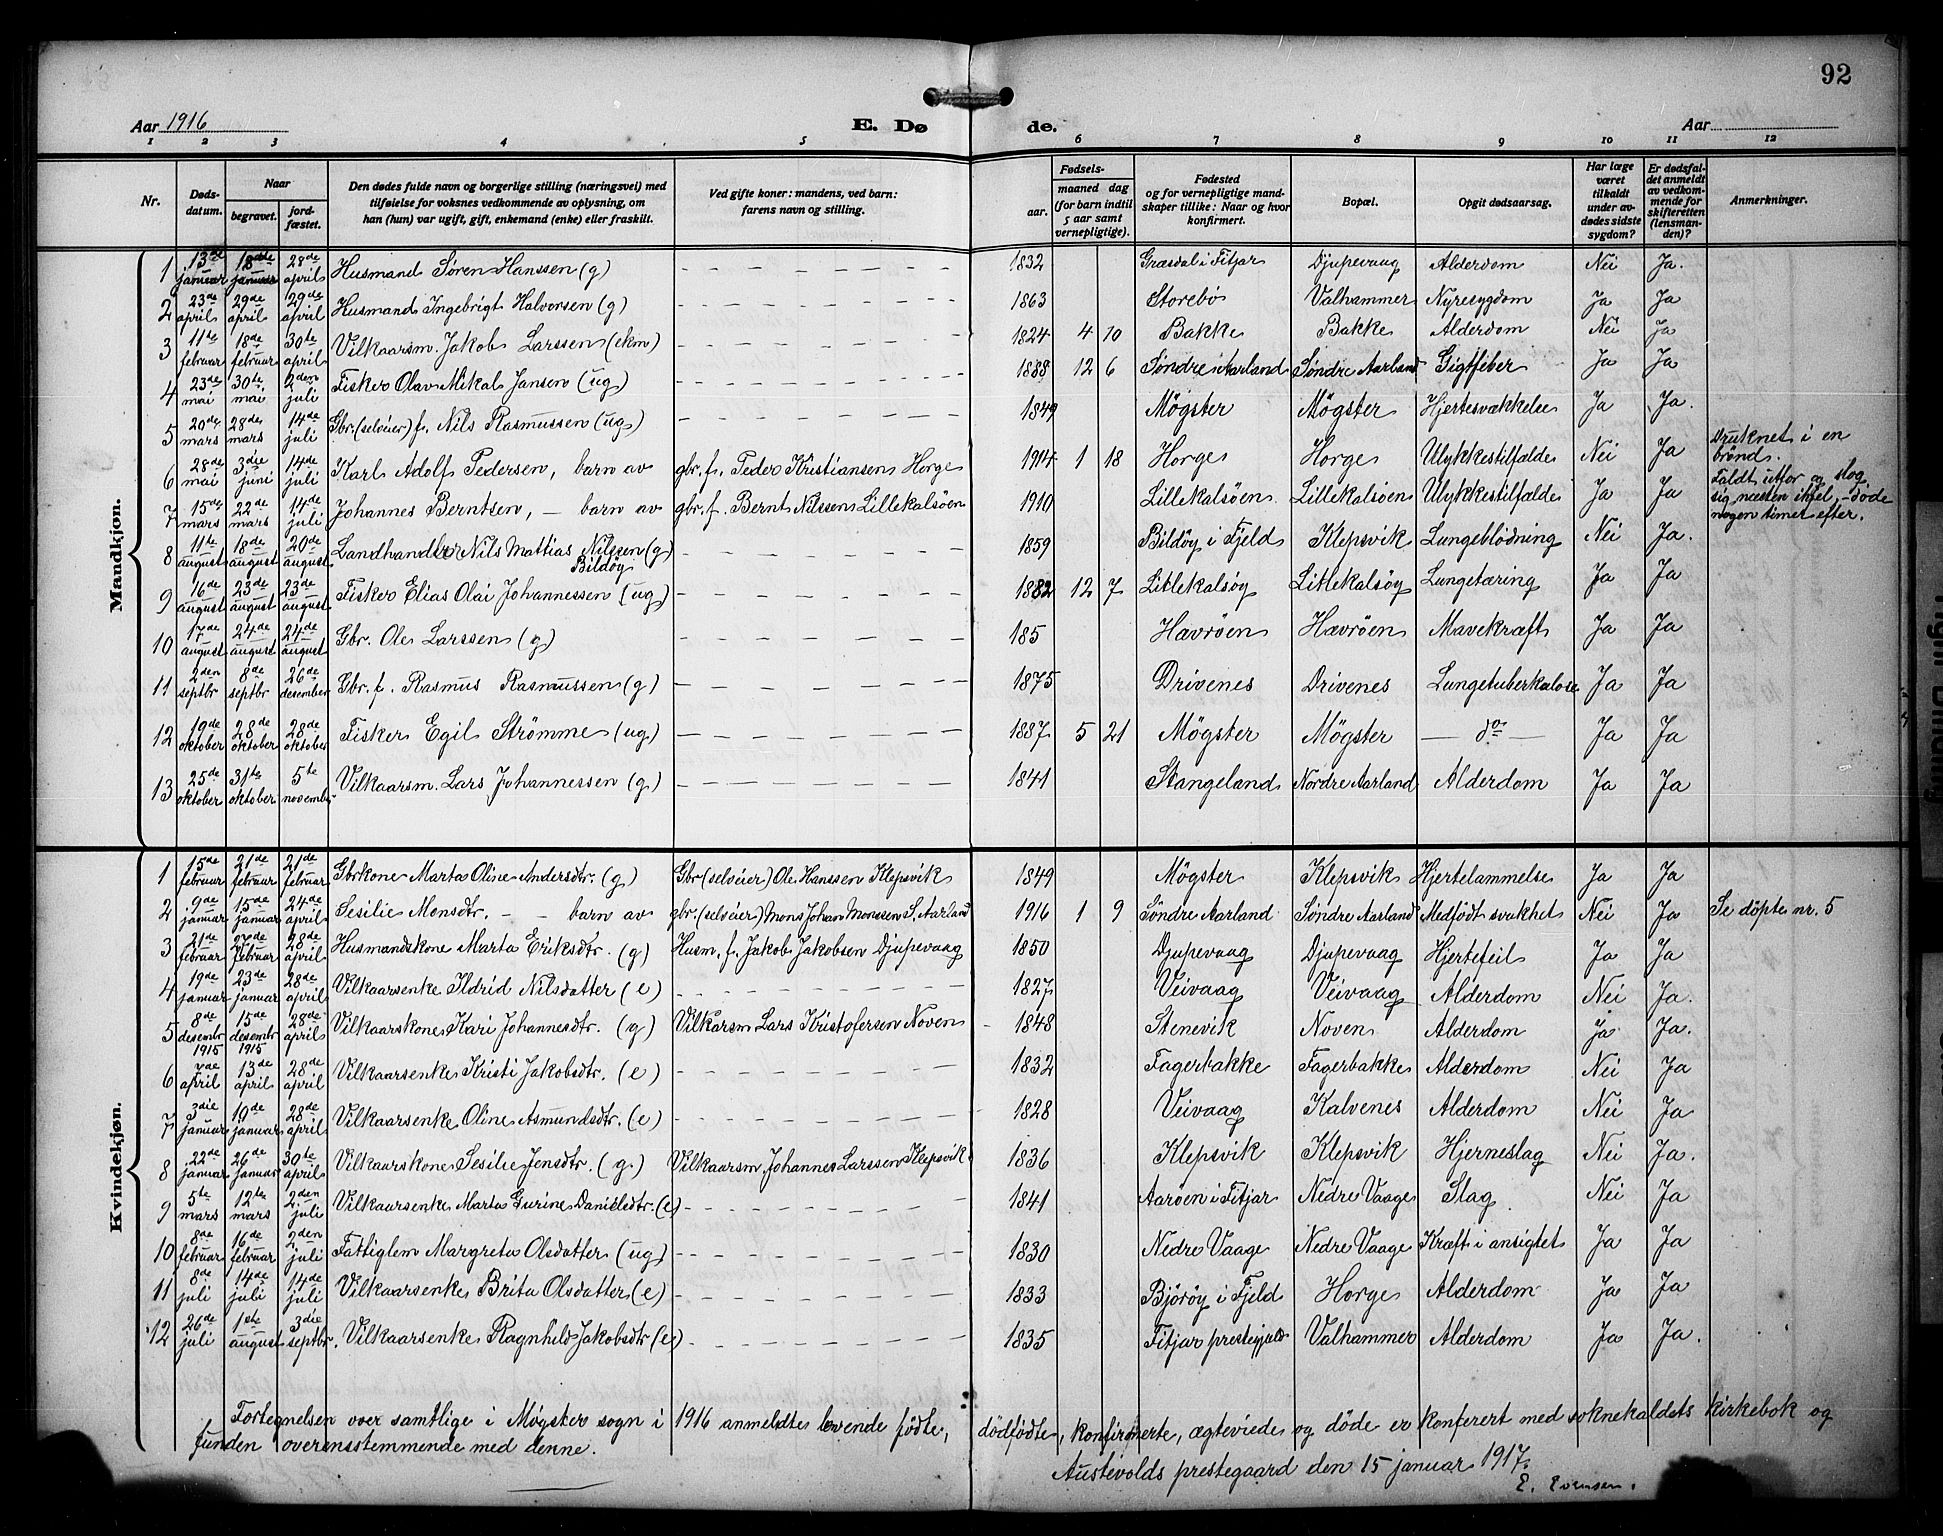 92
Aar 1916
E. Dø de.
Aar
1 2 3 4 5 6 7 8 9 10 11 12
Nr. Døds-datum. Naar begravet. jord-fæstet. Den dødes fulde navn og borgerlige stilling (næringsvei) med tilføielse for voksnes vedkommende av oplysning, om han (hun) var ugift, gift, enkemand (enke) eller fraskilt. Ved gifte koner: mandens, ved barn: farens navn og stilling. Fødsels- aar. maaned dag (for barn indtil 5 aar samt vernepligtige). Fødested og for vernepligtige mand-skaper tillike: Naar og hvor konfirmert. Bopæl. Opgit dødsaarsag. Har læge været tilkaldt under av-dødes sidste sygdom? Er dødsfal-det anmeldt av vedkom-mende for skifteretten (lensman-den)? Anmerkninger.
Mandkjøn.
1 13de januar 18de januar 28de april Husmand Søren Hanssen (g) 1832 Græsdal i Fitjar Djupevaag Alderdom Nei Ja.
2 23de april 29de april 29de april Husmand Ingebrigt Halvorsen (g) 1863 Storebø Valhammer Nyresygdom Ja Ja
3 11te februar 18de februar 30te april Vilkaarsm. Jakob Larssen (ekm) 1824 4 10 Bakke Bakke Alderdom Nei Ja
4 23de mai 30te mai 2den juli Fisker Olav Mikal Jansen (ug) 1888 12 6 Søndre Aarland Søndre Aarland Gigtfeber Ja Ja
5 20de mars 28de mars 14de juli Gbr. (selveier) f. Nils Rasmussen (ug) 1849 Møgster Møgster Hjertesvækkelse Ja Ja.
6 28de mai 3die juni 14de juli Karl Adolf Pedersen, barn av gbr. f. Peder Kristiansen Horge 1914 1 18 Horge Horge Ulykkestilfælde Nei Ja Druknet i en brønd.
7 15de mars 22de mars 14de juli Johannes Berntsen, – barn av gbr. f. Bernt Nilssen Lillekalsöen 1910 Lillekalsöen Lillekalsöen Ulykkestilfælde Ja Ja Faldt utfor og slog sig næsten ihjel, – døde nogen timer efter.
8 11te august 18de august 20de august Landhandler Nils Mattias Nilssen (g) Bildöy 1859 Bildöy i Fjeld Klepsvik Lungeblödning Nei Ja.
9 16de august 23de august 23de august Fisker Elias Olai Johannessen (ug) 1882 12 7 Litlekalsöy Litlekalsöy Lungetæring Ja Ja
10 17de august 24de august 24de august Gbr. Ole Larssen (g) 185 Hævröen Hævröen Mavekræft Ja Ja
11 2den septbr 8de septbr 26de desember Gbr. f. Rasmus Rasmussen (g) 1875 Drivenes Drivenes Lungetuberkulose Ja Ja
12 19de oktober 28de oktober 28de oktober Fisker Egil Strömme (ug) 1887 5 21 Møgster Møgster — do — Ja Ja
13 25de oktober 31te oktober 5te november Vilkaarsm. Lars Johannessen (g) 1841 Stangeland Nordre Aarland Alderdom Ja Ja
Kvindekjøn.
1 15de februar 21de februar 21de februar Gbrkone Marta Oline Andersdtr. (g) Gbr (selveier) Ole Hanssen Klepsvik 1849 Møgster Klepsvik Hjertelammelse Ja Ja
2 9de januar 15de januar 24de april Sesilie Monsdtr. – – barn av gbr. (selveier) Mons Johan Monssen S. Aarland 1916 1 9 Søndre Aarland Søndre Aarland Medfödt svakhet Nei Ja Se döpte nr. 5
3 21de februar 27de februar 28de april Husmandskone Marta Eriksdtr. (g) Husm. f. Jakob Jakobsen Djupevaag 1850 Djupevaag Djupevaag Hjertefeil Ja Ja
4 19de januar 23de januar 28de april Vilkaarsenke Ildrid Nilsdatter (e) 1827 Veivaag Veivaag Alderdom Nei Ja.
5 8de desembr 1915 15de desembr 1915 28de april Vilkaarskone Kari Johannesdtr. (g) Vilkaarsm Lars Kristofersen Noven 1848 Stenevik Noven Alderdom Ja Ja.
6 7de april 13de april 28de april Vilkaarsenke Kristi Jakobsdtr. (e) 1832 Fagerbakke Fagerbakke Alderdom Nei Ja
7 3die januar 10de januar 28de april Vilkaarsenke Oline Asmundsdtr. (e) 1828 Veivaag Kalvenes Alderdom Nei Ja
8 22de januar 26de januar 30te april Vilkaarskone Sesilie Jensdtr. (g.) Vilkaarsm. Johannes Larssen Klepsvik 1836 Klepsvik Klepsvik Hjerneslag Nei Ja.
9 5te mars 12te mars 2den juli Vilkaarsenke Marta Gurine Danielsdtr. (e) 1841 Aaröen i Fitjar Nedre Vaage Slag Nei Ja
10 8de februar 16de februar 2den juli Fattiglem Margreta Olsdatter (ug) 1830 Nedre Vaage Nedre Vaage Kræft i ansigtet Ja Ja
11 8de juli 14de juli 14de juli Vilkaarsenke Brita Olsdatter (e) 1833 Björöy i Fjeld Horge Alderdom Ja Ja
12 26de juli 1ste august 3die septbr. Vilkaarsenke Ragnhild Jakobsdtr (e) 1835 Fitjar prestegjeld Valhammer Alderdom Ja Ja.
Fortegnelsen over samtlige i Møgster sogn i 1916 anmeldte levende födte, dödfödte, konfirmerte, ægteviede og döde er konferert med soknekaldets kirkebok og
funden overensstemmende med denne.
Austevolds prestegaard den 15 januar 1917.
E. Evensen.